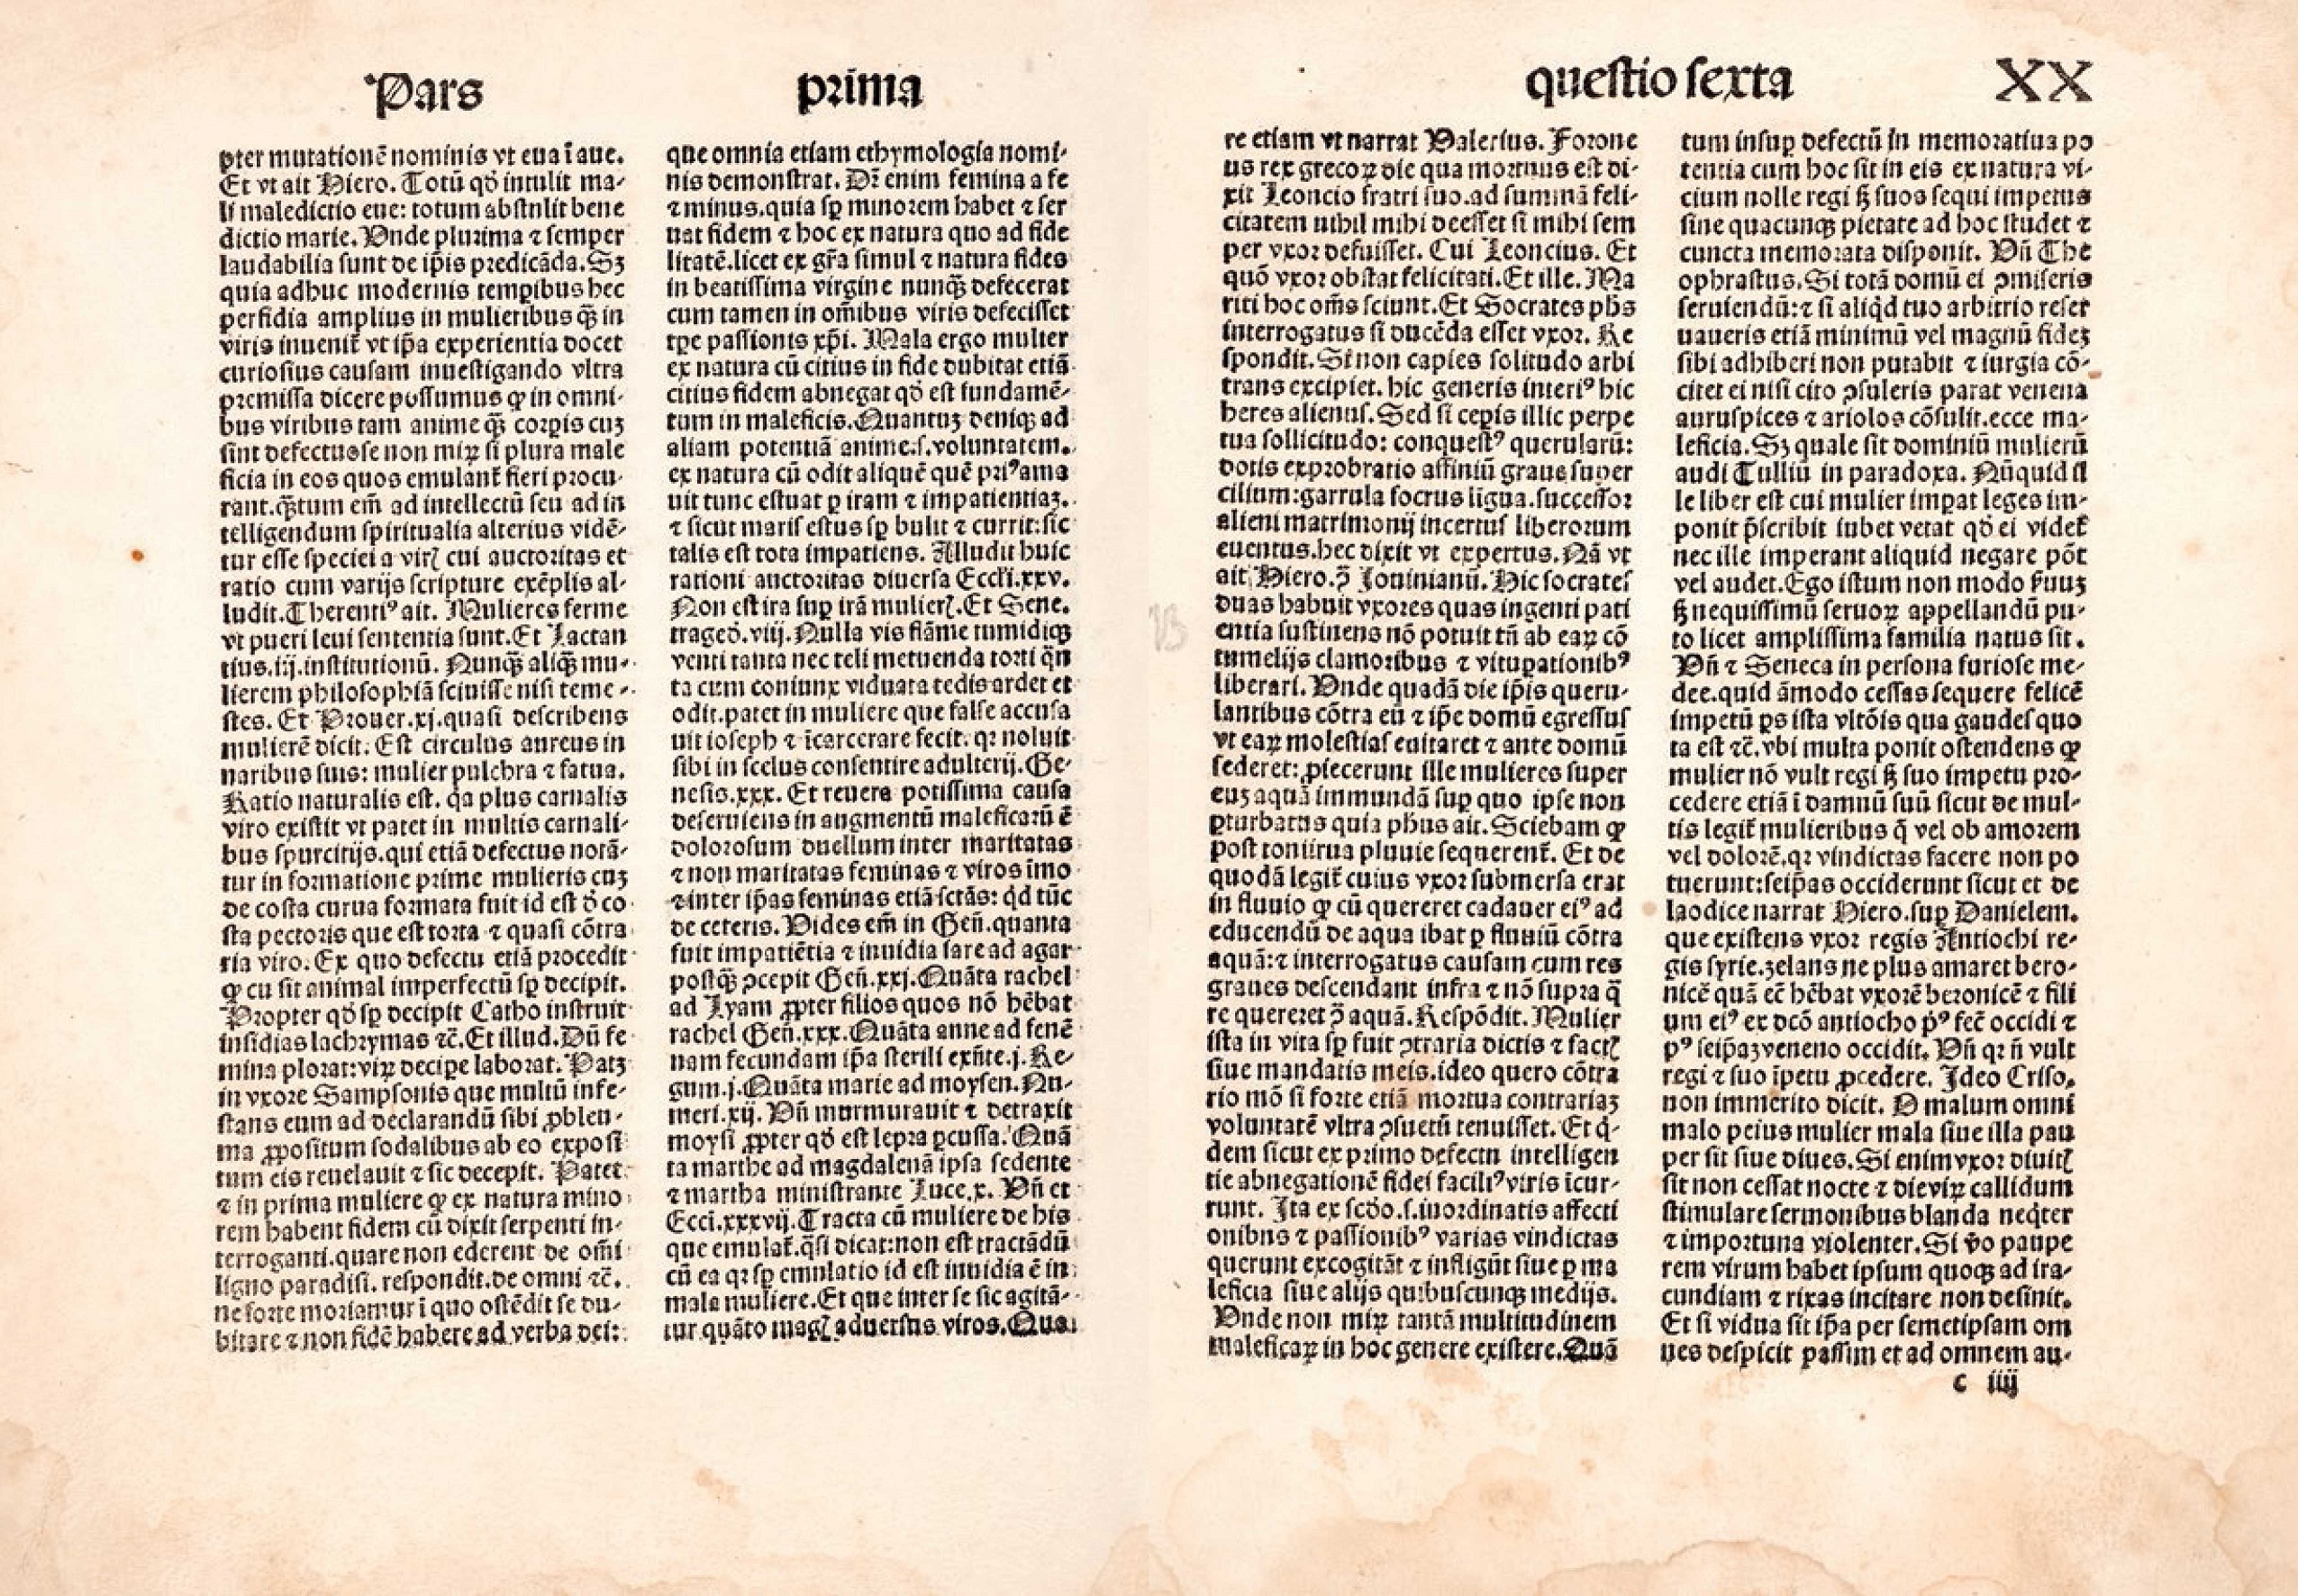 Pars
prima
pter mutationē nominis vt eua ī aue.
Et vt ait Hiero. Totū qď intulit ma-
li maledictio eue: totum abstulit bene
dictio marie. Vnde plurima ⁊ semper
laudabilia sunt de ip̄is predicāda. Sꝫ
quia adhuc modernis temꝑibus hec
perfidia amplius in mulieribus qꝫ̄ in
viris inuenit̄ vt ip̄a experientia docet
curiosius causam inuestigando vltra
premissa dicere possumus ꝙ in omni-
bus viribus tam anime qꝫ̄ corꝑis cuꝫ
sint defectuose non miꝝ si plura male
ficia in eos quos emulant̄ fieri procu-
rant. qꝫ̄tum em̄ ad intellectū seu ad in
telligendum spiritualia alterius vidē-
tur esse speciei a virꝭ cui auctoritas et
ratio cum varijs scripture exēplis al-
ludit. Therentiꝰ ait. Mulieres ferme
vt pueri leui sententia sunt. Et Lactan
tius. iij. institutionū. Nunqꝫ̄ aliqꝫ̄ mu-
lierem philosophiā sciuisse nisi teme-
stes. Et Prouer. xj. quasi describens
mulierē dicit. Est circulus aureus in
naribus suis: mulier pulchra ⁊ fatua.
Ratio naturalis est. qa plus carnalis
viro existit vt patet in multis carnali-
bus spurcitijs. qui etiā defectus notā-
tur in formatione prime mulieris cuꝫ
de costa curua formata fuit id est ď co-
sta pectoris que est torta ⁊ quasi cōtra
ria viro. Ex quo defectu etiā procedit
ꝙ cū sit animal imperfectū sꝑ decipit.
Propter qď sꝑ decipit Catho instruit
insidias lachrymas ⁊c̄. Et illud. Dū fe
mina plorat: viꝝ deciꝑe laborat. Patꝫ
in vxore Sampsonis que multū infe-
stans eum ad declarandū sibi ꝓbleu-
ma ꝓpositum sodalibus ab eo exposi
tum eis reuelauit ⁊ sic decepit. Patet
⁊ in prima muliere ꝙ ex natura mino
rem habent fidem cū dixit serpenti in-
terroganti. quare non ederent de om̄i
ligno paradisi. respondit. de omni ⁊c̄.
ne forte moriamur ī quo ostēdit se du-
bitare ⁊ non fidē habere ad verba dei:
que omnia etiam ethymologia nomi-
nis demonstrat. Dr̄ enim femina a fe
⁊ minus. quia sꝑ minorem habet ⁊ ser
uat fidem ⁊ hoc ex natura quo ad fide
litatē. licet ex gr̄a simul ⁊ natura fides
in beatissima virgine nunqꝫ̄ defecerat
cum tamen in om̄ibus viris defecisset
tꝑe passionis xp̄i. Mala ergo mulier
ex natura cū citius in fide dubitat etiā
citius fidem abnegat qď est fundamē-
tum in maleficis. Quantuꝫ deniqꝫ ad
aliam potentiā anime: s. voluntatem.
ex natura cū odit aliquē quē priꝰ ama
uit tunc estuat ꝑ iram ⁊ impatientiaꝫ.
⁊ sicut maris estus sꝑ bulit ⁊ currit: sic
talis est tota impatiens. Alludit huic
rationi auctoritas diuersa Eccl̄i. xxv.
Non est ira suꝑ irā mulierꝭ. Et Sene.
trageď. viij. Nulla vis flāme tumidiqꝫ
venti tanta nec teli metuenda torti qn̄
ta cum coniunx viduata tedis ardet et
odit. patet in muliere que false accusa
uit ioseph ⁊ īcarcerare fecit. qꝛ noluit
sibi in scelus consentire adulterij. Ge-
nesis. xxx. Et reuera potissima causa
deseruiens in augmentū maleficarū ē
dolorosum duellum inter maritatas
⁊ non maritatas feminas ⁊ viros īmo
⁊ inter ip̄as feminas etiā sctās: qd tūc
de ceteris. Vides em̄ in Gen̄. quanta
fuit impatiētia ⁊ inuidia sare ad agar
postqꝫ̄ ↄcepit Gen̄. xxj. Quāta rachel
ad Lyam ꝓpter filios quos nō hēbat
rachel Gen̄. xxx. Quāta anne ad fenē
nam fecundam ip̄a sterili exn̄te. j. Re-
gum. j. Quāta marie ad moysen. Nu-
meri. xij. Vn̄ murmurauit ⁊ detraxit
moysi ꝓpter qď est lepra ꝑcussa. Quā
ta marthe ad magdalenā ipsa sedente
⁊ martha ministrante Luce. x. Vn̄ et
Ecci. xxxvij. Tracta cū muliere de his
que emulat̄. qs̄i dicat: non est tractādū
cū ea qꝛ sꝑ emulatio id est inuidia ē in
mala muliere. Et que inter se sic agitā-
tur quāto magꝭ aduersus viros. Qua
questio sexta XX
re etiam vt narrat Valerius. Forone
us rex grecoꝝ die qua mortuus est di-
xit Leoncio fratri suo. ad summā feli-
citatem nihil mihi deesset si mihi sem
per vxor defuisset. Cui Leoncius. Et
quō vxor obstat felicitati. Et ille. Ma
riti hoc om̄s sciunt. Et Socrates ph̄s
interrogatus si ducēda esset vxor. Re
spondit. Si non capies solitudo arbi
trans excipiet. hic generis interiꝰ hic
heres alienus. Sed si ceꝑis illic perpe
tua sollicitudo: conquestꝰ querularū:
dotis exprobratio affiniū graue super
cilium: garrula socrus līgua. successor
alieni matrimonij incertus liberorum
euentus. hec dixit vt expertus. Nā vt
ait Hiero. ꝯ̄ Iouinianū. Hic socrates
duas habuit vxores quas ingenti pati
entia sustinens nō potuit tn̄ ab eaꝝ cō
tumelijs clamoribus ⁊ vituꝑationibꝰ
liberari. Vnde quadā die ip̄is queru-
lantibus cōtra eū ⁊ ip̄e domū egressus
vt eaꝝ molestias euitaret ⁊ ante domū
sederet: ꝓiecerunt ille mulieres super
euꝫ aquā immundā suꝑ quo ipse non
ꝑturbatus quia ph̄us ait. Sciebam ꝙ
post tonitrua pluuie sequerent̄. Et de
quodā legit̄ cuius vxor submersa erat
in fluuio ꝙ cū quereret cadauer eiꝰ ad
educendū de aqua ibat ꝑ fluuiū cōtra
aquā: ⁊ interrogatus causam cum res
graues descendant infra ⁊ nō supra q̄
re quereret ꝯ̄ aquā. Respōdit. Mulier
ista in vita sꝑ fuit ↄtraria dictis ⁊ factꝭ
siue mandatis meis. ideo quero cōtra
rio mō si forte etiā mortua contrariaꝫ
voluntatē vltra ↄsuetū tenuisset. Et q̇-
dem sicut ex primo defectu intelligen
tie abnegationē fidei faciliꝰ viris īcur-
runt. Ita ex scďo. s. inordinatis affecti
onibus ⁊ passionibꝰ varias vindictas
querunt excogitāt ⁊ infligūt siue ꝑ ma
leficia siue alijs quibuscunqꝫ medijs.
Vnde non miꝝ tantā multitudinem
maleficaꝝ in hoc genere existere. Quā
tum insuꝑ defectū in memoratiua po
tentia cum hoc sit in eis ex natura vi-
cium nolle regi ꝫ̄ suos sequi impetus
sine quacunqꝫ pietate ad hoc studet ⁊
cuncta memorata disponit. Vn̄ The
ophrastus. Si totā domū ei ↄmiseris
seruiendū: ⁊ si aliqd tuo arbitrio reser
uaueris etiā minimū vel magnū fideꝫ
sibi adhiberi non putabit ⁊ iurgia cō-
citet ei nisi cito ↄsuleris parat venena
auruspices ⁊ ariolos cōsulit. ecce ma-
leficia. Sꝫ quale sit dominiū mulierū
audi Tulliū in paradoxa. Nūquid il
le liber est cui mulier imꝑat leges im-
ponit p̄scribit iubet vetat qď ei videt̄
nec ille imperant aliquid negare pōt
vel audet. Ego istum non modo s̄uuꝫ
ꝫ̄ nequissimū seruoꝝ appellandū pu-
to licet amplissima familia natus sit.
Vn̄ ⁊ Seneca in persona furiose me-
dee. quid āmodo cessas sequere felicē
impetū ꝑs ista vltōis qua gaudes quo
ta est ⁊c̄. vbi multa ponit ostendens ꝙ
mulier nō vult regi ꝫ̄ suo impetu pro-
cedere etiā ī damnū suū sicut de mul-
tis legit̄ mulieribus q̄ vel ob amorem
vel dolorē. qꝛ vindictas facere non po
tuerunt: seip̄as occiderunt sicut et de
laodice narrat Hiero. suꝑ Danielem.
que existens vxor regis Antiochi re-
gis syrie. zelans ne plus amaret bero-
nicē quā ec̄ hēbat vxorē beronicē ⁊ fili
um eiꝰ ex dcō antiocho p̄ꝰ fec̄ occidi ⁊
pꝰ seip̄aꝫ veneno occidit. Vn̄ qꝛ n̄ vult
regi ⁊ suo īpetu ꝓcedere. Ideo Criso.
non immerito dicit. O malum omni
malo peius mulier mala siue illa pau
per sit siue diues. Si enim vxor diuitꝭ
sit non cessat nocte ⁊ die viꝝ callidum
stimulare sermonibus blanda neqter
⁊ importuna violenter. Si v̄o paupe
rem virum habet ipsum quoqꝫ ad ira-
cundiam ⁊ rixas incitare non desinit.
Et si vidua sit ip̄a per semetipsam om
nes despicit passim et ad omnem au-
c iiij